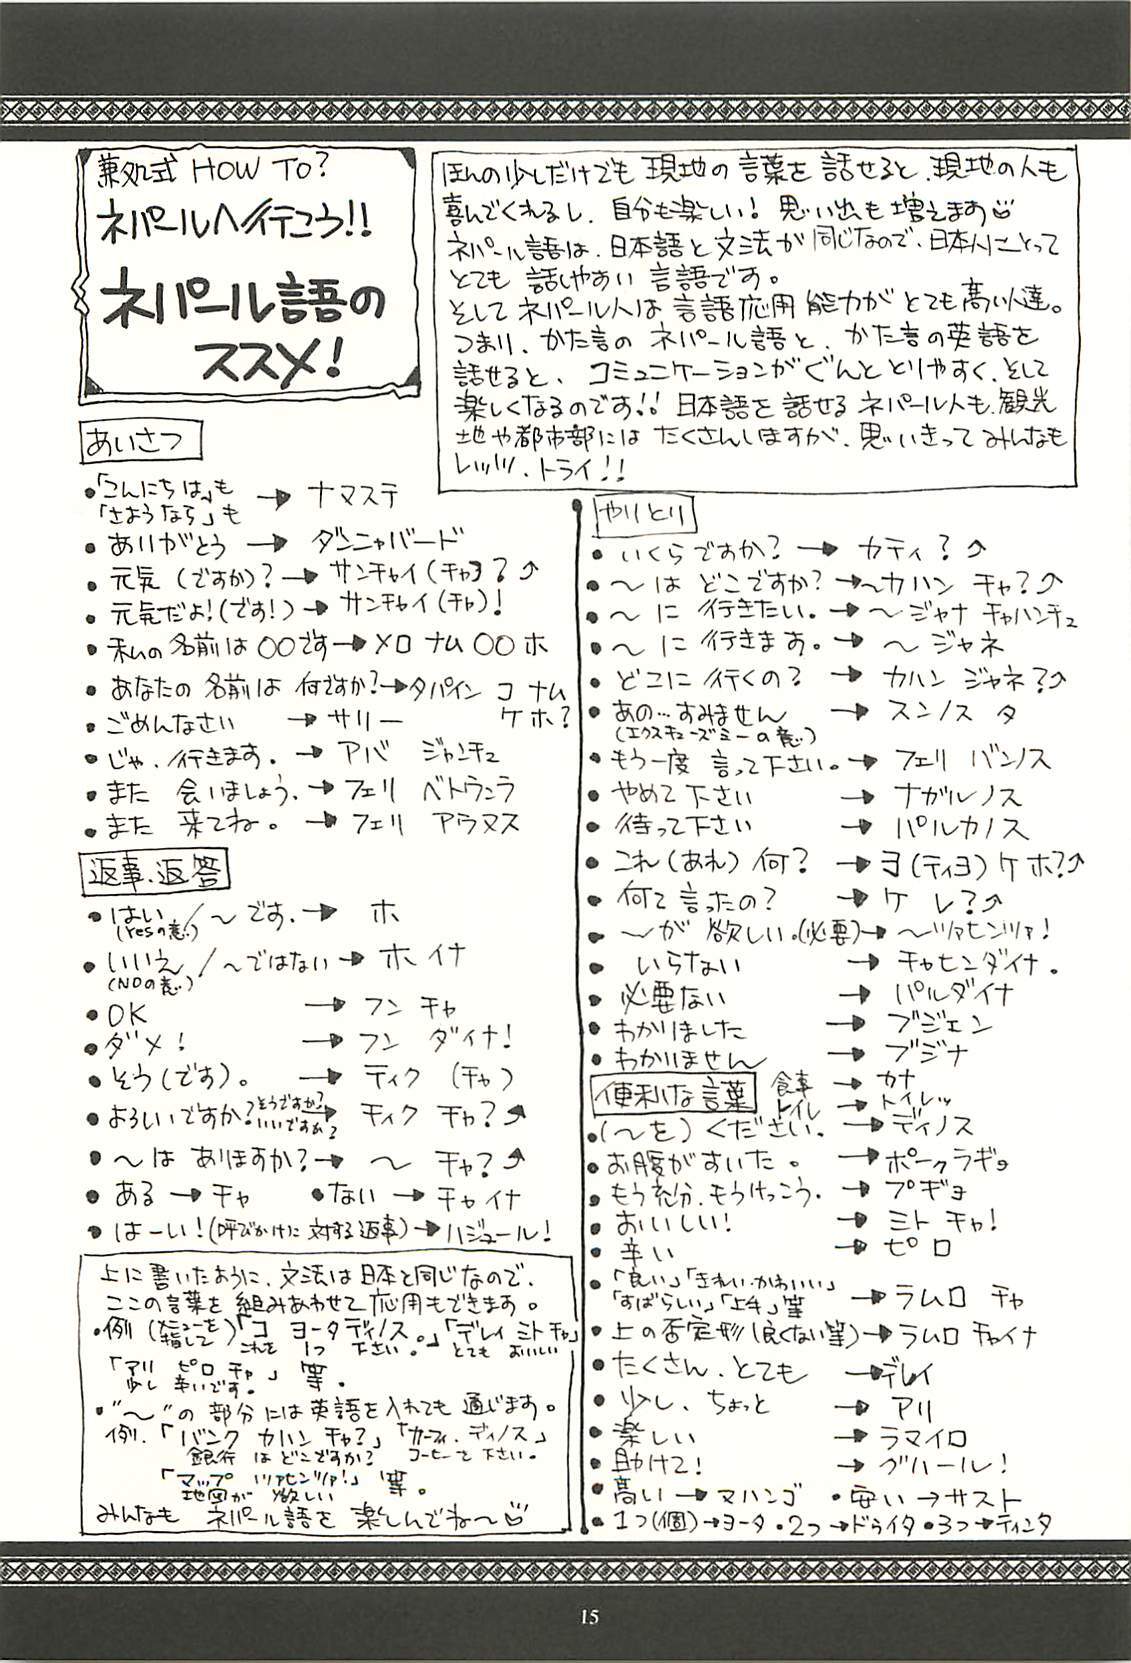 兼処式 HOW TO?
ネパールへ行こう!!
ネパール語の
ススメ!
ほんの少しだけでも現地の言葉を話せると、現地の人も
喜んでくれるし、自分も楽しい!思い出も増えます
ネパール語は、日本語と文法が同じなので、日本人にとって
とても話しやすい言語です。
そしてネパール人は言語応用能力がとても高い人達。
つまり、かた言のネパール語と、かた言の英語を
話せると、コミュニケーションがぐんととりやすく、そして
楽しくなるのです!!日本語を話せるネパール人も、観光
地や都市部にはたくさんいますが、思いきってみんなも
レッツ、トライ!!
あいさつ
•「こんにちは」も
「さようなら」も → ナマステ
•ありがとう → ダンニャバード
•元気(ですか)? → サンチャイ(チャ)?↗
•元気だよ!(です!) → サンチャイ(チャ)!
•私の名前は〇〇です → メロ ナム〇〇ホ
•あなたの名前は何ですか? → タパイン コ ナム
ケホ?
•ごめんなさい → サリー
•じゃ、行きます。 → アバ ジャンチュ
•また会いましょう。 → フェリ ベトウンラ
•また来てね。 → フェリ アウヌス
返事、返答
•はい/〜です。 → ホ
(Yesの意)
•いいえ/〜ではない → ホイナ
(NOの意)
•OK → フン チャ
•ダメ! → フン ダイナ!
•そう(です)。 → ティク(チャ)
•よろしいですか?そうですか?いいですか? → ティク チャ?↗
•〜はありますか? → 〜 チャ?↗
•ある → チャ •ない → チャイナ
•はーい!(呼びかけに対する返事) → ハジュール!
上に書いたように、文法は日本と同じなので、
ここの言葉を組みあわせて応用もできます。
•例(メニューを指して)「コ ヨータディノス。」「デレイ ミトチャ」
これを 1つ 下さい。 とても おいしい
「アリ ピロ チャ」等。
少し 辛いです。
•"〜"の部分には英語を入れても通じます。
例.「バンク カハン チャ?」「カーフィ・ディノス」
銀行はどこですか? コーヒーを下さい。
「マップ ツァヒンツァ!」等。
地図が 欲しい
みんなも ネパール語を楽しんでね〜
やりとり
•いくらですか? → カティ?↗
•〜はどこですか? → 〜カハン チャ?↗
•〜に行きたい。 → 〜ジャナ チャハンチュ
•〜に行きます。 → 〜ジャネ
•どこに行くの? → カハン ジャネ?↗
•あの…すみません → スンノス タ
(エクスキューズミーの意)
•もう一度言って下さい。 → フェリ バンノス
•やめて下さい → ナガルノス
•待って下さい → パルカノス
•これ(あれ)何? → ヨ(ティヨ)ケホ?↗
•何て言ったの? → ケ レ?↗
•〜が欲しい。(必要) → 〜ツァヒンツァ!
•いらない → チャヒンダイナ。
•必要ない → パルダイナ
•わかりました → ブジェン
•わかりません → ブジナ
便利な言葉
食事 → カナ
トイレ → トイレッ
•(〜を)ください。 → ディノス
•お腹がすいた。 → ボークラギョ
•もう充分、もうけっこう。 → プギョ
•おいしい! → ミト チャ!
•辛い → ピロ
•「良い」「きれい・かわいい」
「すばらしい」「上手」等 → ラムロ チャ
•上の否定形(良くない等) → ラムロ チャイナ
•たくさん、とても → デレイ
•少し、ちょっと → アリ
•楽しい → ラマイロ
•助けて! → グハール!
•高い → マハンゴ •安い → サスト
•1つ(個) → ヨータ •2つ → ドゥイタ •3つ → ティンタ
15